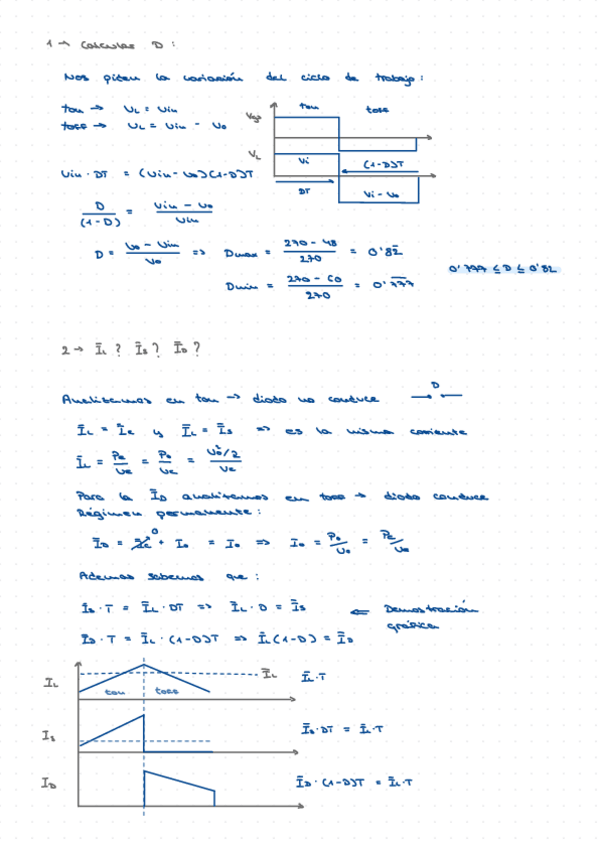 1 → Calcular D :
Nos piden la variación del ciclo de trabajo :
ton → VL = Vin
toff → VL = Vin - Vo
ton toff
VL
Vi (1-D)T
DT Vi - Vo
Vin · DT = (Vin - Vo)(1-D)T
D/(1-D) = (Vin - Vo)/Vin
D = (Vo - Vin)/Vo => Dmax = (270 - 48)/270 = 0'82
Dmin = (270 - 60)/270 = 0'777
0'777 ≤ D ≤ 0'82
2 → ĪL ? ĪS ? ĪD ?
Analizamos en ton → diodo no conduce
D
ĪL = Īe y ĪL = ĪS => es la misma corriente
ĪL = Pe/Ve = Po/Ve = (Vo²/2)/Ve
Para la ĪD analizamos en toff → diodo conduce
Régimen permanente :
ĪD = Īc 0 + Io = Io => Io = Po/Vo = Pe/Vo
Ademas sabemos que :
ĪS · T = ĪL · DT => ĪL · D = ĪS <= Demostración
gráfica
ĪD · T = ĪL · (1-D)T => ĪL(1-D) = ĪD
IL ton toff ĪL ĪL·T
IS ĪS·DT = ĪL·T
ID ĪD·(1-D)T = ĪL·T